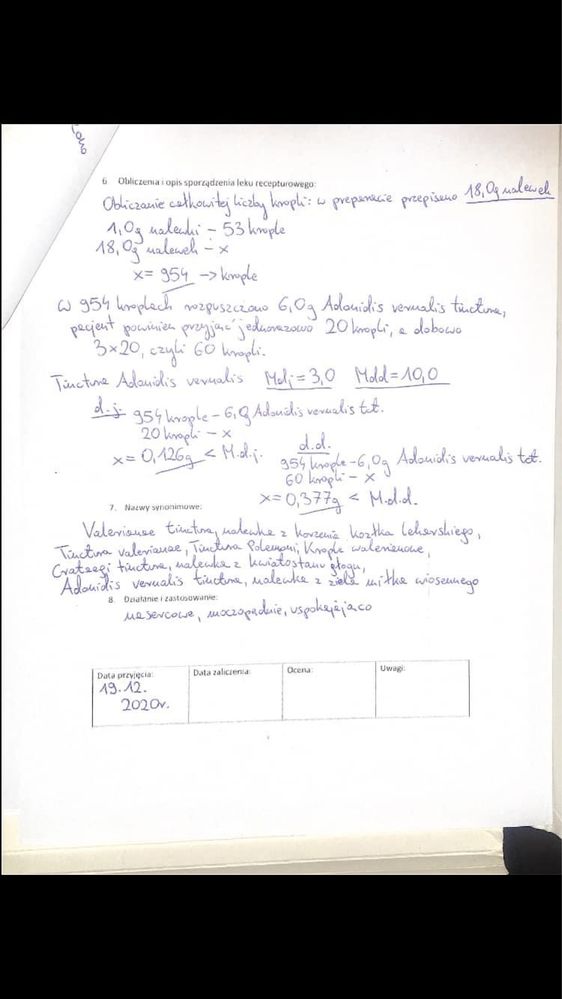 6. Obliczenia i opis sporządzenia leku recepturowego:
Obliczanie całkowitej liczby kropli: w preparacie przepisano 18,0g nalewek
1,0g nalewki - 53 krople
18,0g nalewek - x
x = 954 -> krople
W 954 kroplach rozpuszczono 6,0g Adonidis vernalis tinctura,
pacjent powinien przyjąć jednorazowo 20 kropli, a dobowo
3×20, czyli 60 kropli.
Tinctura Adonidis vernalis Mdj = 3,0 Mdd = 10,0
d.j. 954 krople - 6,0g Adonidis vernalis tct.
20 kropli - x
x = 0,126g < M.d.j.
d.d.
954 krople - 6,0g Adonidis vernalis tct.
60 kropli - x
x = 0,377g < M.d.d.
7. Nazwy synonimowe:
Valerianae tinctura, nalewka z korzenia kozłka lekarskiego,
Tinctura valerianae, Tinctura Polemoni, Krople walerianowe,
Crataegi tinctura, nalewka z kwiatostanu głogu,
Adonidis vernalis tinctura, nalewka z ziela miłka wiosennego
8. Działanie i zastosowanie:
nasercowe, moczopędnie, uspokajająco
Data przyjęcia: Data zaliczenia: Ocena: Uwagi:
19.12.
2020r.